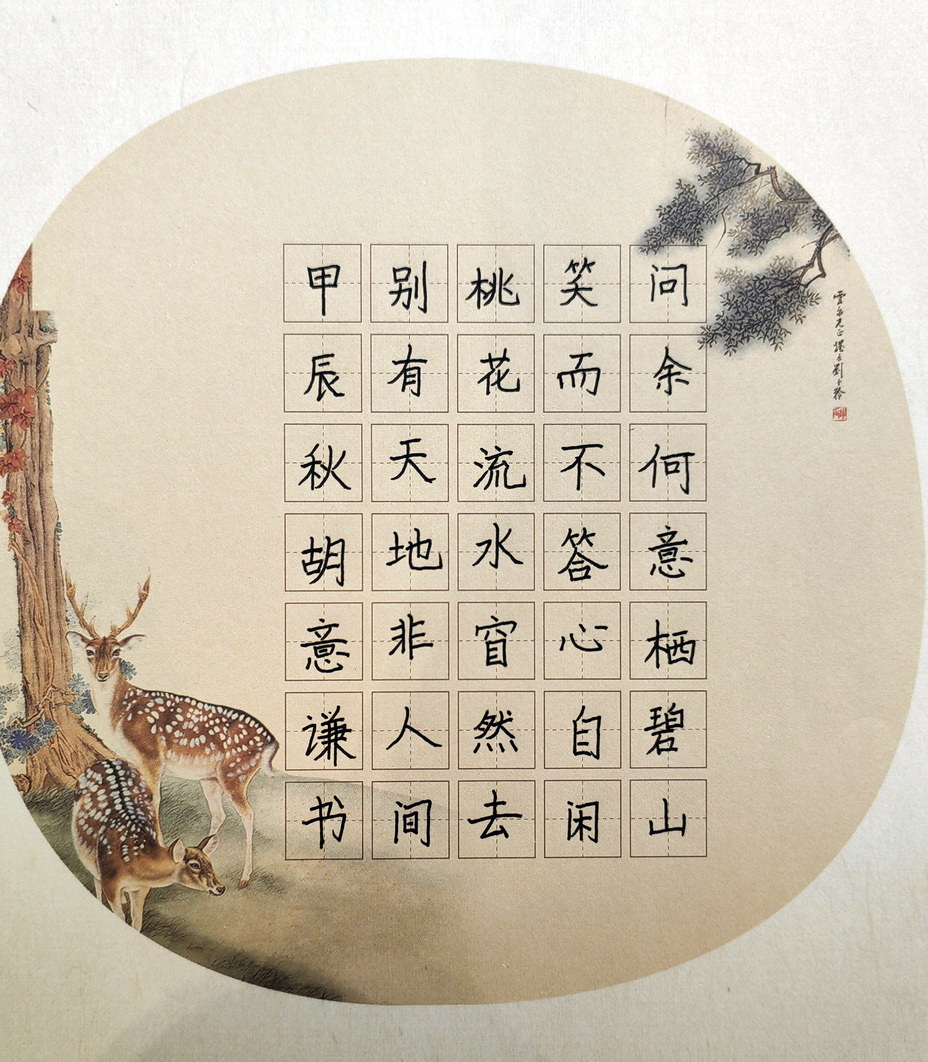 问余何意栖碧山
笑而不答心自闲
桃花流水窅然去
别有天地非人间
甲辰秋胡意谦书